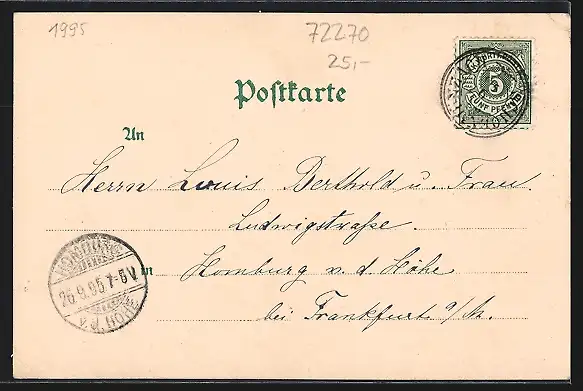 1995
72270
25,-
5
FÜNF PFENNIG
Postkarte
An
Herrn Louis Berthold u. Frau
Ludwigstraße.
in Homburg v. d. Höhe
bei Frankfurt a/M.
HOMBURG
26.9.95 7-8V
v.d. HÖHE